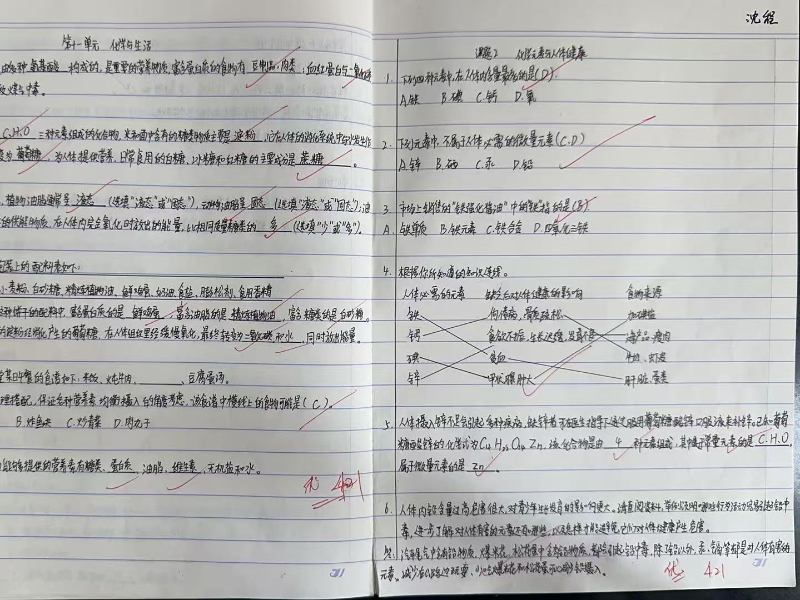 第十一单元 化学与生活
由多种氨基酸构成的,是重要的营养物质,富含蛋白质的食物有豆制品、肉类;血红蛋白与一氧化碳
C.H.O 三种元素组成的化合物,
葡萄糖,为人体提供营养,日常食用的白糖、冰糖和红糖的主要成分是蔗糖。
植物油脂通常呈液态(选填"液态"或"固态"),动物油脂呈固态(选填"液态"或"固态");油
在人体内完全氧化时放出的能量,比相同质量糖类的多(选填"少"或"多")。
配料表如下:
小麦粉、白砂糖、精炼植物油、鲜鸡蛋、奶油、食盐、膨松剂、食用香精
饼干的配料中,富含蛋白质的是鲜鸡蛋,富含油脂的是精炼植物油,富含糖类的是白砂糖。
产生的葡萄糖,在人体组织里经缓慢氧化,最终转变为二氧化碳和水,同时放出能量。
某日中餐的食谱如下:米饭、炖牛肉、____、豆腐蛋汤。
搭配,保证各种营养素均衡摄入的角度考虑,该食谱中横线上的食物可能是(C)。
B.炸鱼块 C.炒青菜 D.肉丸子
能够提供的营养素有糖类、蛋白质、油脂、维生素、无机盐和水。
优 4.21
沈程
课题2 化学元素与人体健康
1. 下列四种元素中,在人体内含量最多的是(D)
A.铁 B.碘 C.钙 D.氧
2. 下列元素中,不属于人体必需的微量元素(C.D)
A.锌 B.硒 C.汞 D.铅
3. 市场上销售的"铁强化酱油"中的"铁"指的是(B)
A.铁单质 B.铁元素 C.铁合金 D.四氧化三铁
4. 根据你所知道的知识连线。
人体必需的元素 缺乏后对人体健康的影响 食物来源
铁 佝偻病、骨质疏松 加碘盐
钙 食欲不振,生长迟缓,发育不良 海产品、瘦肉
碘 贫血
锌 甲状腺肿大 肝脏、蛋类
5. 人体摄入锌不足会引起多种疾病,缺锌者可在医生指导下通过服用葡萄糖酸锌口服液来补锌。已知葡萄
糖酸锌的化学式为C₁₂H₂₂O₁₄Zn。该化合物是由 4 种元素组成,其中属于常量元素的是C.H.O,
属于微量元素的是 Zn。
6. 人体内铅含量过高危害很大,对青少年生长发育的影响更大。
毒,进一步了解对人体有害的元素还有哪些,以及怎样才能避免它们对人体健康产生危害。
汽车尾气中含铅物质,爆米花、松花蛋中含铅物质,都能引起铅中毒,除了铅以外,汞、镉等都是对人体有害的
元素。减少在公路边玩耍,少吃爆米花和松花蛋可以减少铅摄入。
优 4.21